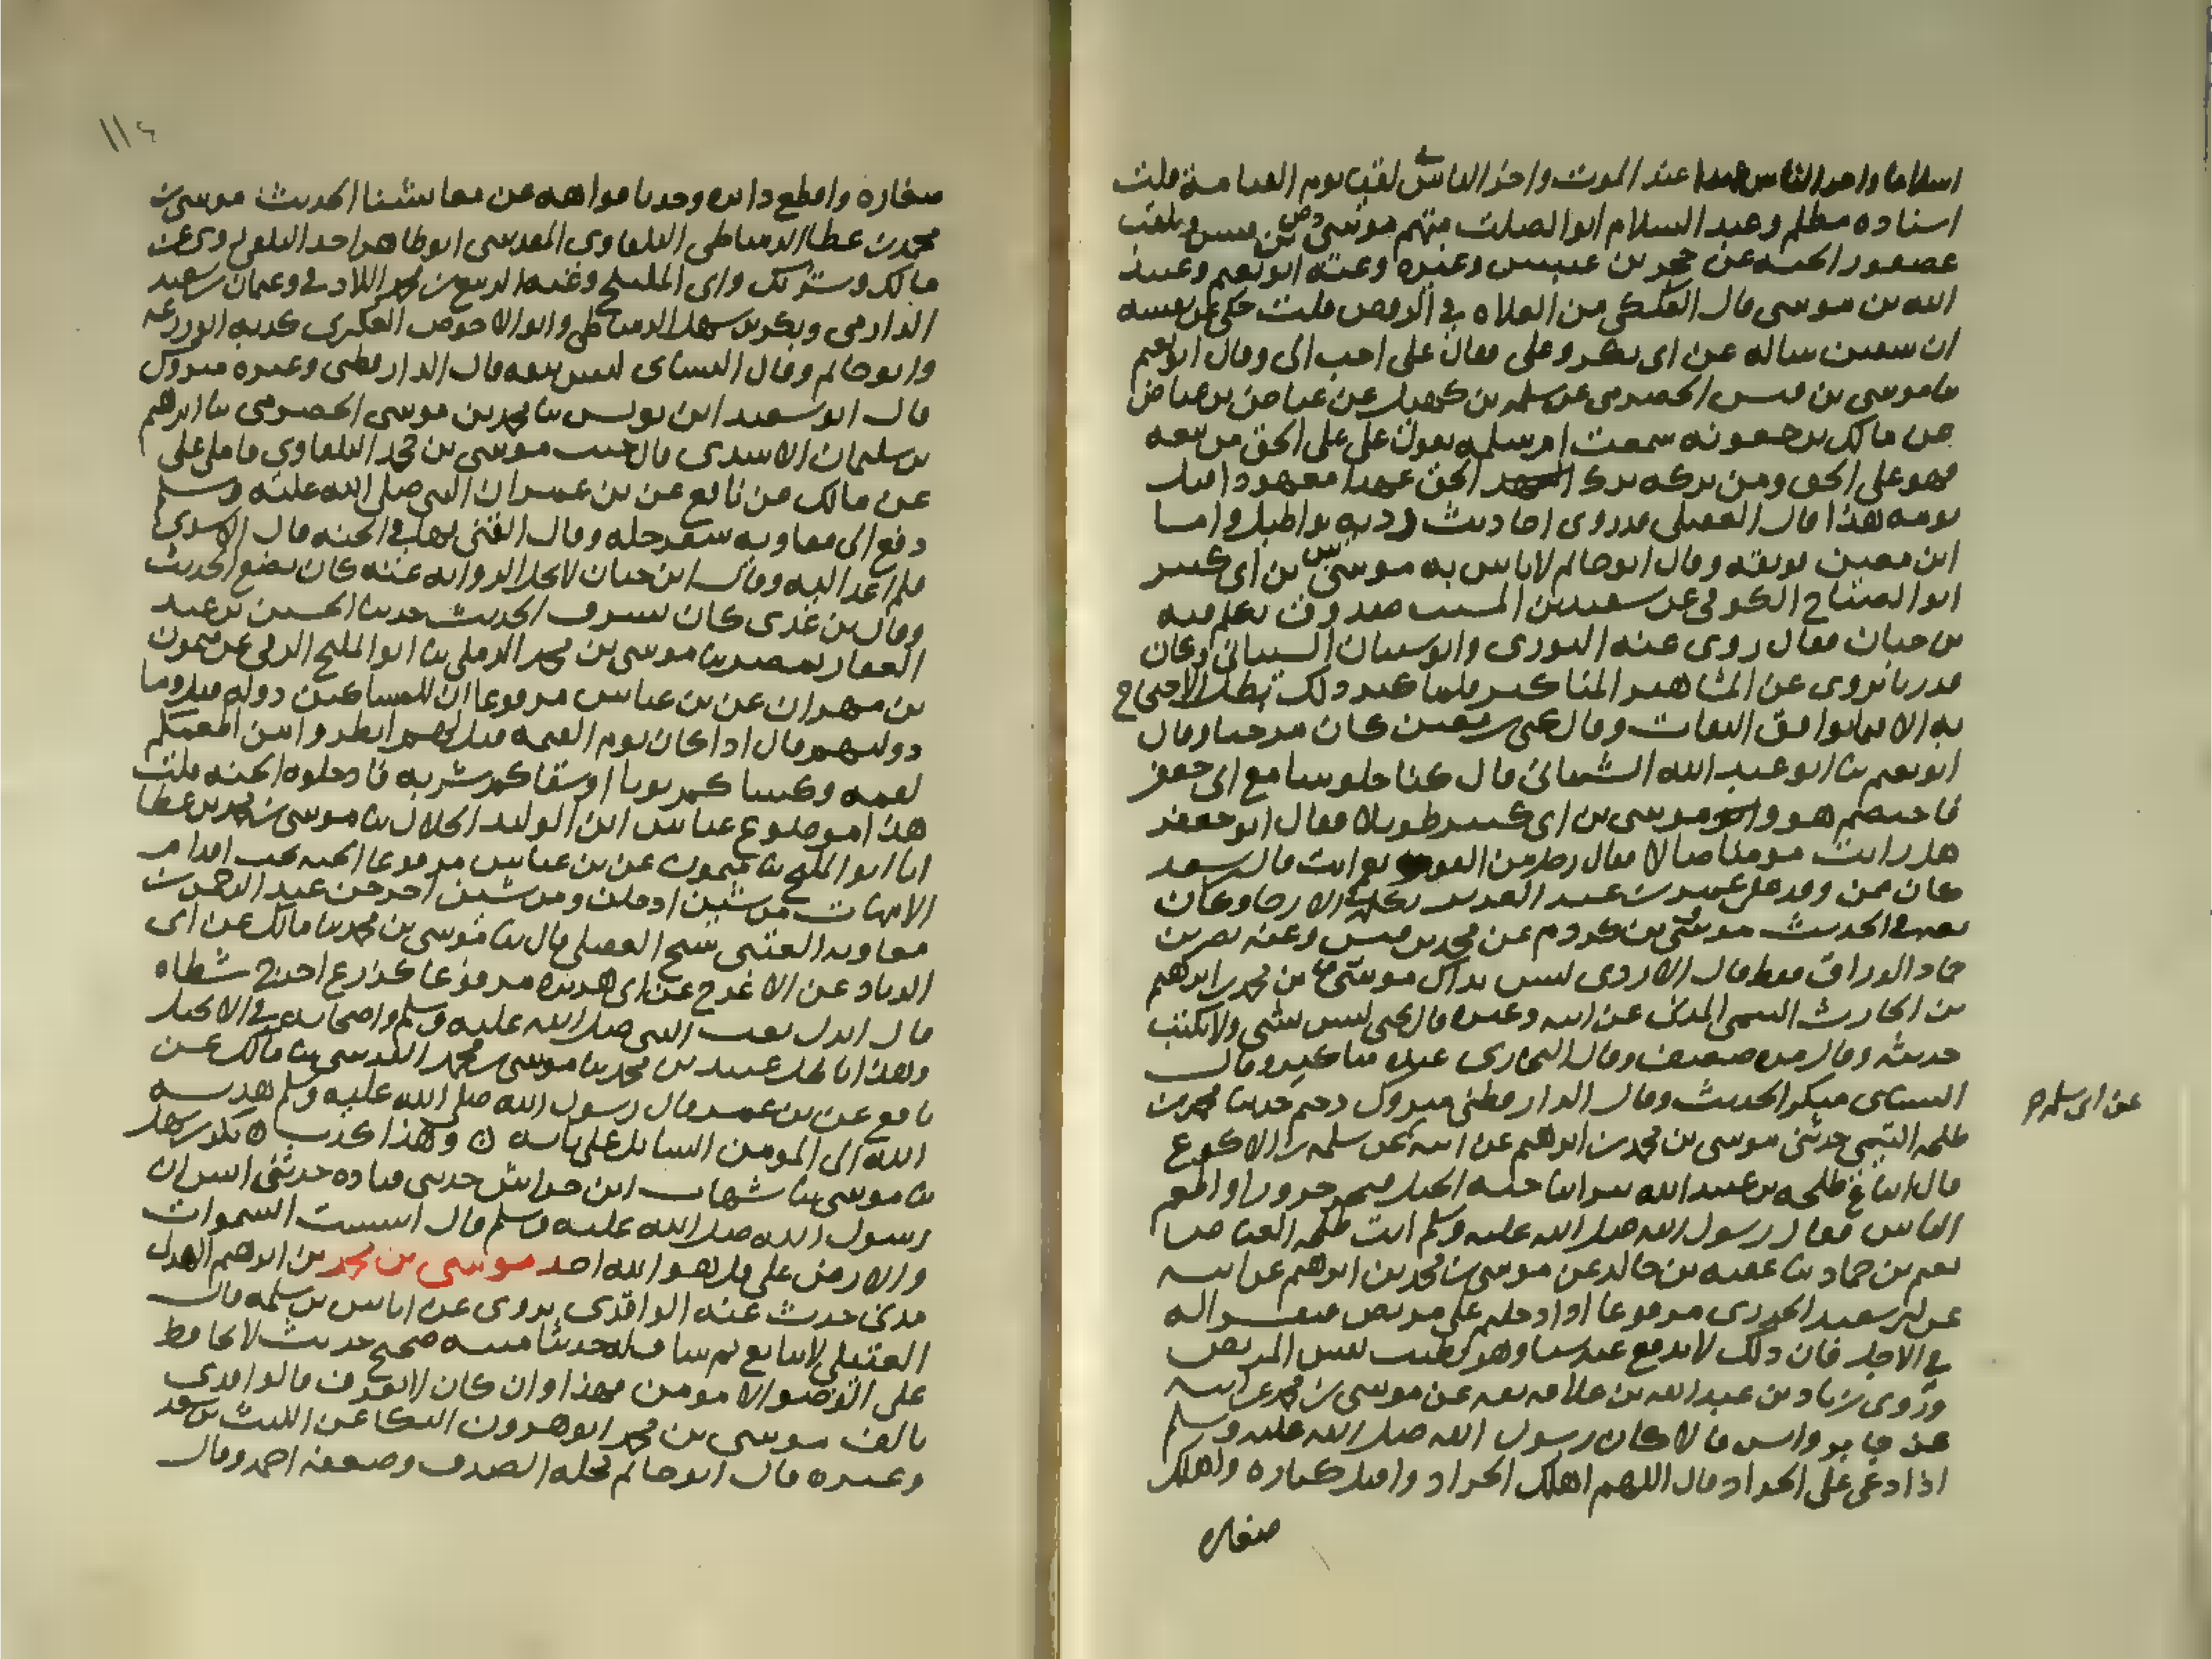 اسلاما واحر الناس عهدا عند الموت واخر الناس لقيا يوم القيامة قلت
اسناده مظلم وعبد السلام ابو الصلت متهم موسى بن قيس يلقب
عصفور الجنه عن حجر بن عنبس وغيره وعنه ابو نعيم وعبيد
الله بن موسى قال العقيلي من الغلاه في الرفض قلت حكى عن نفسه
ان سفين ساله عن ابى بكر وعلى فقال على احب الى وقال ابو نعيم
ثنا موسى بن قيس الحضرمى عن سلمه بن كهيل عن عياض بن عياض
عن مالك بن جعونه سمعت ام سلمه تقول على على الحق من تبعه
فهو على الحق ومن تركه ترك الحق عهدا معهودا قبل
يومه هذا قال العقيلى قدروى احاديث رديه بواطيل واما
ابن معين فوثقه وقال ابو حاتم لاباس به موسى بن ابى كثير
ابو الصباح الكوفى عن سعيد بن المسيب صدوق تكلم فيه
بن حبان فقال روى عنه الثورى وابو سنان الشيبانى وكان
قدريا يروى عن المشاهير المناكير فلما كثر ذلك بطل الاحتجاج
به الا فيما يوافق الثقات وقال يحيى بن معين كان مرجيا وقال
ابو نعيم ثنا ابو عبد الله الشيبانى قال كنا جلوسا مع ابى جعفر
فاختصم هو وموسى بن ابى كثير طويلا فقال ابو جعفر
هل رايت مومنا ضالا فقال رجل من القوم نعم انت قال بن سعد
كان ممن وفد على عمر بن عبد العزيز فكلمه فى الارجا وكان
ثقه فى الحديث موسى بن كردم عن محمد بن قيس وعنه نصر بن
حماد الوراق فقط قال الازدى ليس بذاك موسى بن محمد بن ابرهيم
بن الحارث التيمى المدنى عن ابيه وغيره قال يحيى ليس بشى ولا يكتب
حديثه وقال مره ضعيف وقال البخارى عنده مناكير وقال
النساى منكر الحديث وقال الدارقطنى متروك دحيم حدثنا محمد بن
طلحه التيمى حدثنى موسى بن محمد بن ابرهيم عن ابيه عن سلمه بن الاكوع
عن ابى سلمه
قال ابتاع طلحه بن عبيد الله بيرا بناحيه الجبل فنحر جزورا واطعم
الناس فقال رسول الله صلى الله عليه وسلم انت طلحه الفياض
نعيم بن حماد ثنا عقبه بن خالد عن موسى بن محمد بن ابرهيم عن ابيه
عن ابى سعيد الخدرى مرفوعا اذا دخلتم على مريض فنفسوا له
فى الاجل فان ذلك لا يدفع عنه شيا وهو يطيب نفس المريض
وروى زياد بن عبد الله بن علاثه ثقه عن موسى بن محمد عن ابيه
عن جابر وانس قالا كان رسول الله صلى الله عليه وسلم
اذا دعى على الجراد قال اللهم اهلك الجراد واقتل كباره واهلك
صغاره
١١٤
صغاره واقطع دابره وخذ بافواهه عن معايشنا الحديث موسى بن
محمد بن عطا الدمياطى البلقاوى المقدسى ابو طاهر احد التلفى روى عن
مالك وشريك وابى المليح وعنه الربيع بن محمد اللاذقى وعثمان بن سعيد
الدارمى وبكر بن سهل الدمياطى وابو الاحوص العكبرى كذبه ابو زرعه
وابو حاتم وقال النساى ليس بثقه قال الدارقطنى وغيره متروك
قال ابو سعيد ابن يونس ثنا محمد بن موسى الحضرمى ثنا ابرهيم
بن سليمان الاسدى قال جيت موسى بن محمد البلقاوى فاملى على
عن مالك عن نافع عن بن عمر ان النبى صلى الله عليه وسلم
دفع الى معاويه سفرجله وقال القنى بها فى الجنه قال الاسدى
فلم اعد اليه وقال ابن حبان لا تحل الروايه عنه كان يضع الحديث
وقال بن عدى كان يسرق الحديث حدثنا الحسين بن عبد
الغفار بمصر ثنا موسى بن محمد الرملى ثنا ابو المليح الرقى عن ميمون
بن مهران عن بن عباس مرفوعا ان للمساكين دوله قيل وما
دولتهم قال اذا كان يوم القيمه قيل لهم انظروا من اطعمكم
لقمه وكساكم ثوبا او سقاكم شربه فادخلوه الجنه قلت
هذا موضوع عباس ابن الوليد الخلال ثنا موسى بن محمد بن عطا
انا ابو المليح ثنا ميمون عن بن عباس مرفوعا الجنه تحت اقدام
الامهات من شين ادخلن ومن شين اخرجن عبد الرحمن بن
معاويه العتبى شيخ العقيلى قال ثنا موسى بن محمد ثنا مالك عن ابى
الزناد عن الاعرج عن ابى هريره مرفوعا كزرع اخرج شطاه
قال انزل نعت النبى صلى الله عليه وسلم واصحابه فى الانجيل
وهذا باطل عبيد بن محمد ثنا موسى بن محمد القدسى ثنا مالك عن
نافع عن بن عمر قال رسول الله صلى الله عليه وسلم هديه
الله الى المومن السايل على بابه ٥ وهذا كذب ٥ بكر بن سهل
ثنا موسى ثنا شهاب ابن خراش حدثنى قتاده حدثنى انس ان
رسول الله صلى الله عليه وسلم قال اسست السموات
والارض على قل هو الله احد موسى بن محمد بن ابرهيم الهذلى
مدنى حدث عنه الواقدى يروى عن اياس بن سلمه قال
العقيلى لا يتابع ثم ساق له حديثا متنه صحيح حديث لا يحافظ
على الوضو الا مومن فهذا وان كان لا يعرف فالواقدى
تالف موسى بن محمد ابو هرون البكا عن الليث بن سعد
وغيره قال ابو حاتم محله الصدق وضعفه احمد وقال